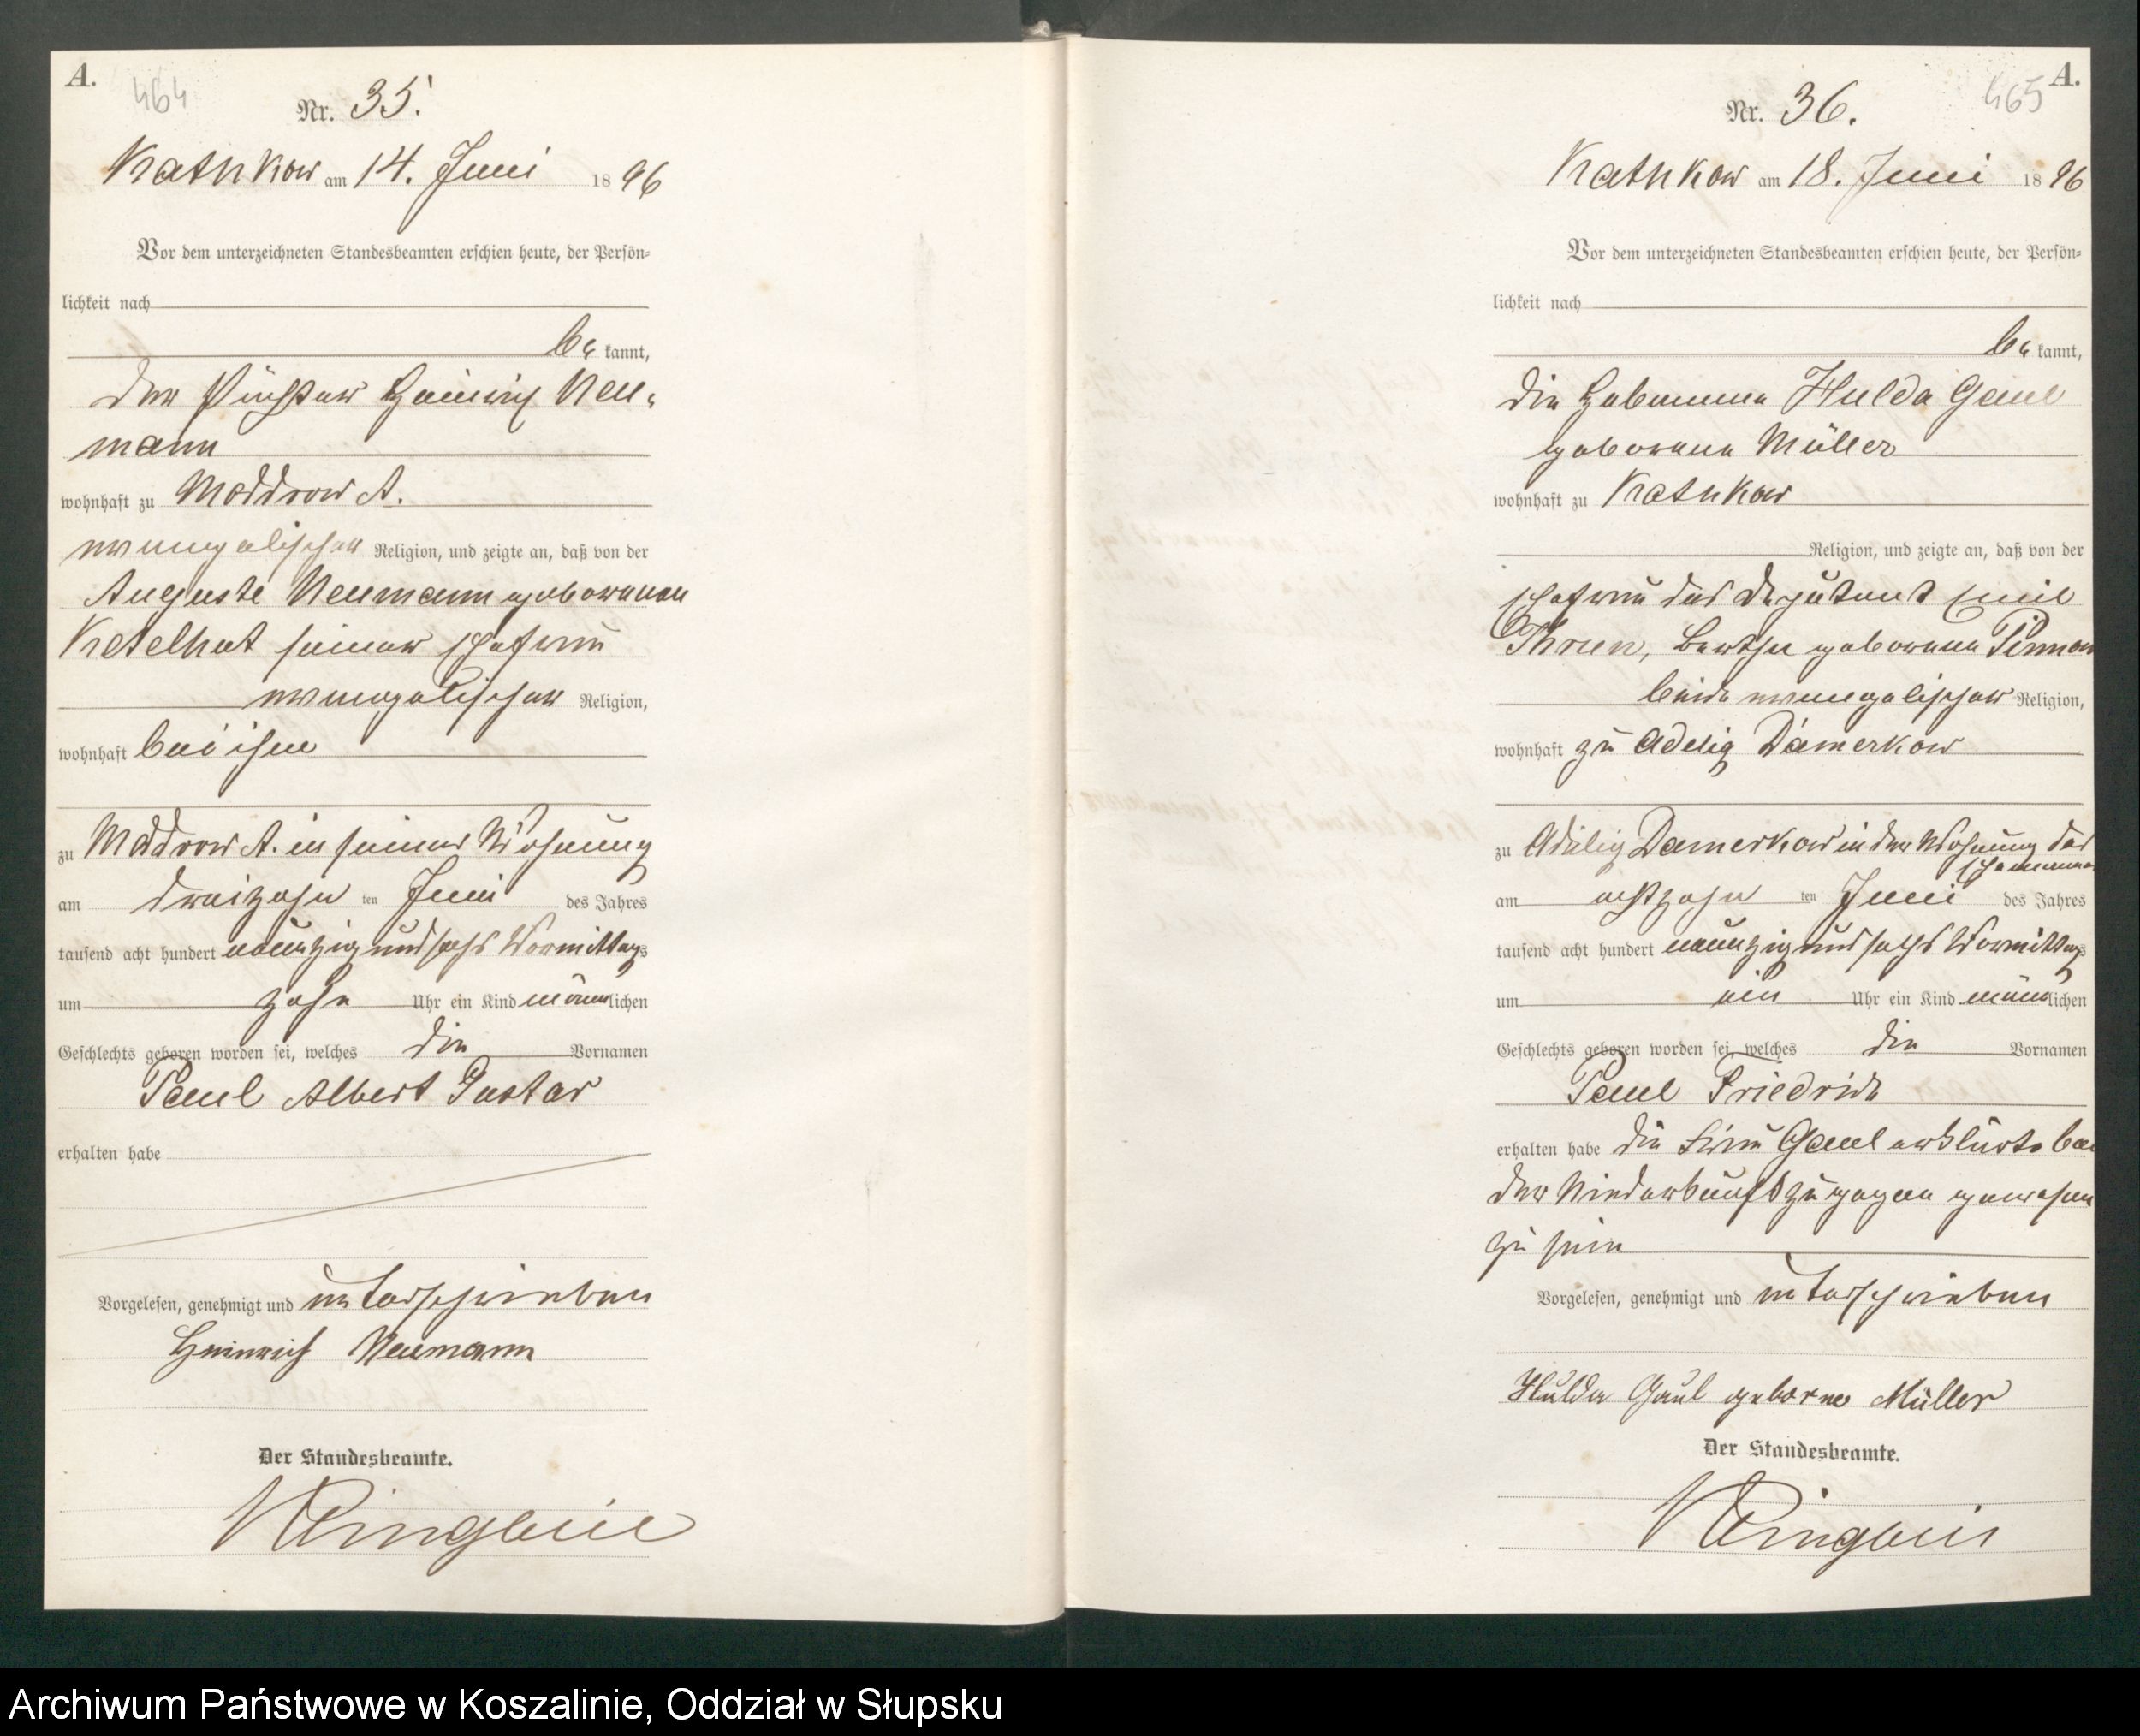 A.
464
Nr. 35.
Kathkow am 14. Juni 1896
Vor dem unterzeichneten Standesbeamten erschien heute, der Persön-
lichkeit nach
be kannt,
der Heinrich Neu-
mann
wohnhaft zu Moddrow A.
evangelischer Religion, und zeigte an, daß von der
Auguste Neumann geborenen
Ketelhut seiner Ehefrau
evangelischer Religion,
wohnhaft bei ihm
zu Moddrow A. in seiner Wohnung
am dreizehn ten Juni des Jahres
tausend acht hundert neunzig und sechs Vormittags
um zehn Uhr ein Kind männlichen
Geschlechts geboren worden sei, welches die Vornamen
Paul Albert Gustav
erhalten habe
Vorgelesen, genehmigt und unterschrieben
Heinrich Neumann
Der Standesbeamte.
A.
465
Nr. 36.
Kathkow am 18. Juni 1896
Vor dem unterzeichneten Standesbeamten erschien heute, der Persön-
lichkeit nach
be kannt,
die Hebamme Hulda Gaul
geborene Müller
wohnhaft zu Kathkow
Religion, und zeigte an, daß von der
Ehefrau des Deputant Emil
Thrun, Bertha geborene
beide evangelischer Religion,
wohnhaft zu Adelig Damerkow
zu Adelig Damerkow in der Wohnung der
am achtzehn ten Juni des Jahres
tausend acht hundert neunzig und sechs Vormittags
um ein Uhr ein Kind männlichen
Geschlechts geboren worden sei, welches die Vornamen
Paul Friedrich
erhalten habe die Frau Gaul erklärte bei
der Niederkunft zugegen gewesen
zu sein
Vorgelesen, genehmigt und unterschrieben
Hulda Gaul geborne Müller
Der Standesbeamte.
Archiwum Państwowe w Koszalinie, Oddział w Słupsku